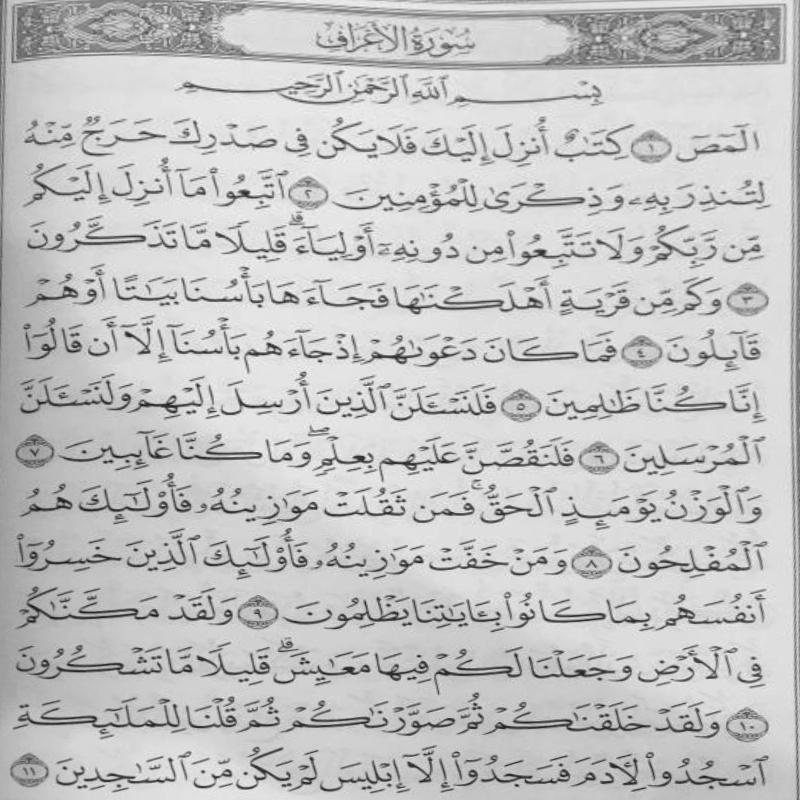 سُورَةُ الأَعْرَافِ
بِسْمِ ٱللَّهِ ٱلرَّحْمَٰنِ ٱلرَّحِيمِ
الٓمٓصٓ ١ كِتَٰبٌ أُنزِلَ إِلَيْكَ فَلَا يَكُن فِي صَدْرِكَ حَرَجٌ مِّنْهُ
لِتُنذِرَ بِهِۦ وَذِكْرَىٰ لِلْمُؤْمِنِينَ ٢ ٱتَّبِعُوا۟ مَآ أُنزِلَ إِلَيْكُم
مِّن رَّبِّكُمْ وَلَا تَتَّبِعُوا۟ مِن دُونِهِۦٓ أَوْلِيَآءَ ۗ قَلِيلًا مَّا تَذَكَّرُونَ
٣ وَكَم مِّن قَرْيَةٍ أَهْلَكْنَٰهَا فَجَآءَهَا بَأْسُنَا بَيَٰتًا أَوْ هُمْ
قَآئِلُونَ ٤ فَمَا كَانَ دَعْوَىٰهُمْ إِذْ جَآءَهُم بَأْسُنَآ إِلَّآ أَن قَالُوٓا۟
إِنَّا كُنَّا ظَٰلِمِينَ ٥ فَلَنَسْـَٔلَنَّ ٱلَّذِينَ أُرْسِلَ إِلَيْهِمْ وَلَنَسْـَٔلَنَّ
ٱلْمُرْسَلِينَ ٦ فَلَنَقُصَّنَّ عَلَيْهِم بِعِلْمٍ ۖ وَمَا كُنَّا غَآئِبِينَ ٧
وَٱلْوَزْنُ يَوْمَئِذٍ ٱلْحَقُّ ۚ فَمَن ثَقُلَتْ مَوَٰزِينُهُۥ فَأُو۟لَٰٓئِكَ هُمُ
ٱلْمُفْلِحُونَ ٨ وَمَنْ خَفَّتْ مَوَٰزِينُهُۥ فَأُو۟لَٰٓئِكَ ٱلَّذِينَ خَسِرُوٓا۟
أَنفُسَهُم بِمَا كَانُوا۟ بِـَٔايَٰتِنَا يَظْلِمُونَ ٩ وَلَقَدْ مَكَّنَّٰكُمْ
فِي ٱلْأَرْضِ وَجَعَلْنَا لَكُمْ فِيهَا مَعَٰيِشَ ۗ قَلِيلًا مَّا تَشْكُرُونَ
١٠ وَلَقَدْ خَلَقْنَٰكُمْ ثُمَّ صَوَّرْنَٰكُمْ ثُمَّ قُلْنَا لِلْمَلَٰٓئِكَةِ
ٱسْجُدُوا۟ لِـَٔادَمَ فَسَجَدُوٓا۟ إِلَّآ إِبْلِيسَ لَمْ يَكُن مِّنَ ٱلسَّٰجِدِينَ ١١